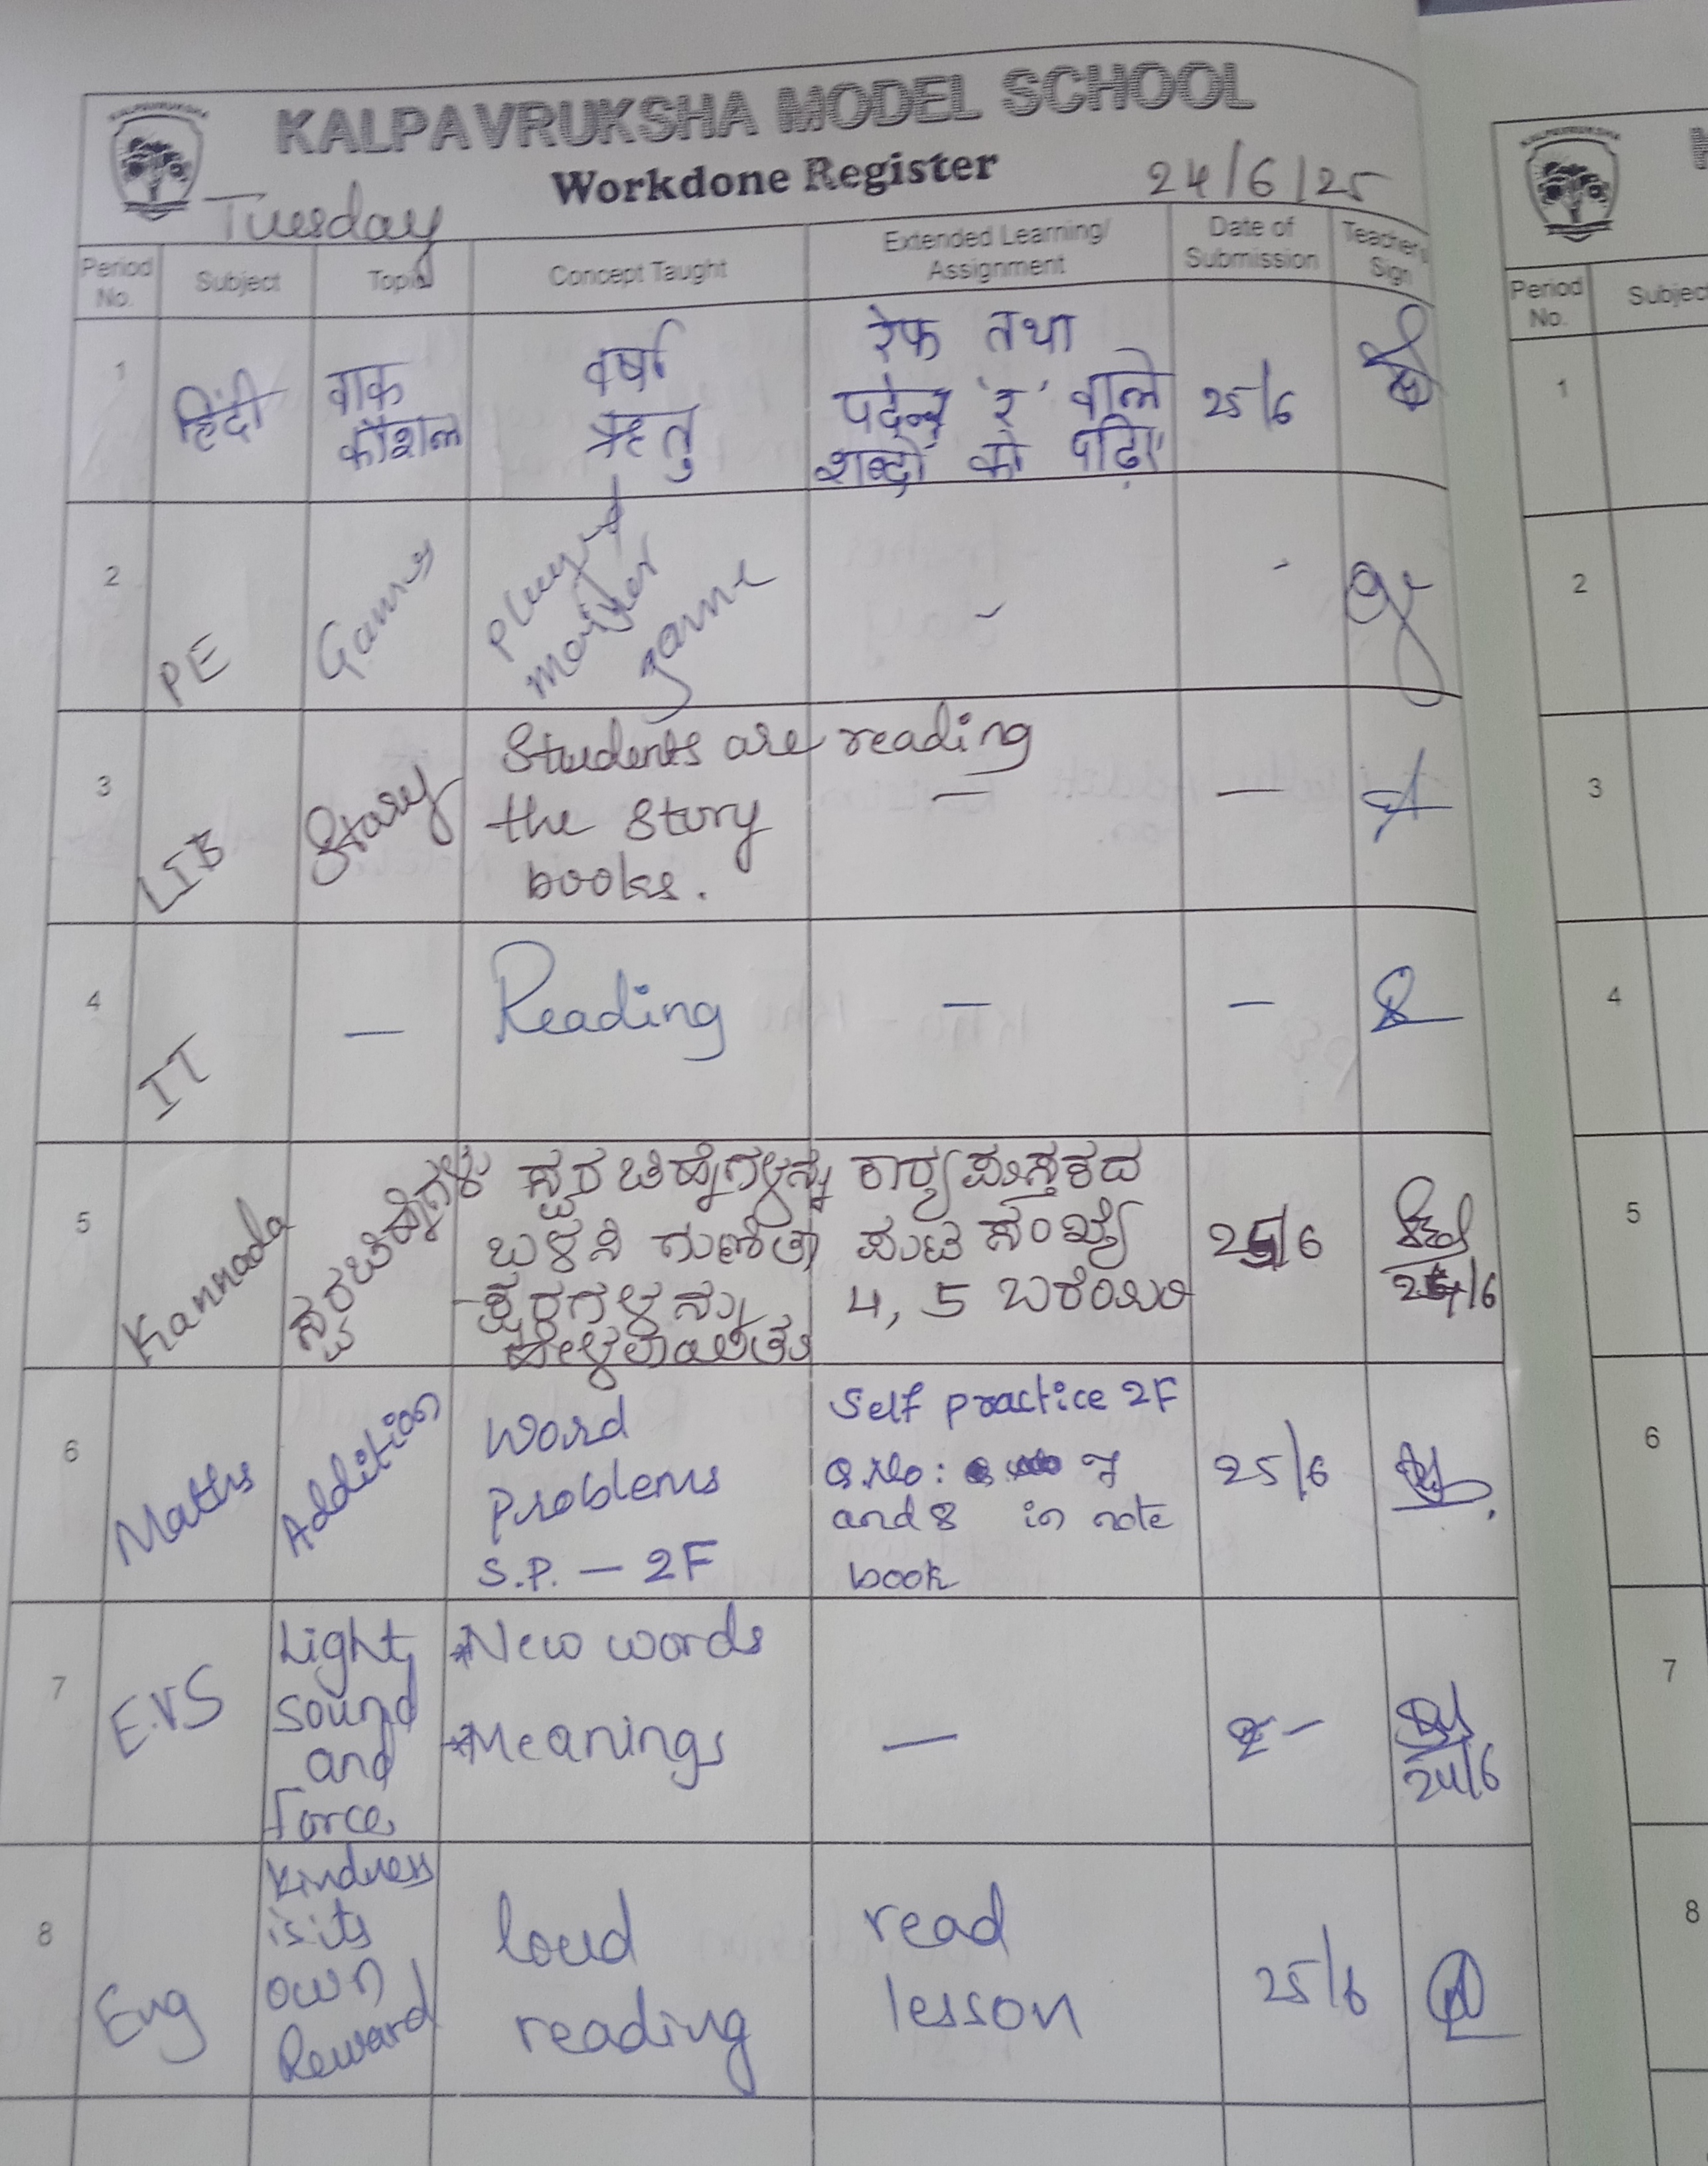 KALPAVRUKSHA MODEL SCHOOL
Workdone Register
Tuesday
24/6/25
Period No.
Subject
Topic
Concept Taught
Extended Learning/
Assignment
Date of
Submission
Teacher's
Sign
1
हिंदी
वाक
कौशल
वर्षा
ऋतु
रेफ तथा
पदेन 'र' वाले
शब्दों को पढ़िए
25/6
2
PE
Games
played
game
-
-
3
LIB
Story
Students are reading
the Story
books.
—
—
4
IT
—
Reading
—
—
5
Kannada
ಸ್ವರಚಿಹ್ನೆಗಳು
ಸ್ವರ ಚಿಹ್ನೆಗಳನ್ನು
ಬಳಸಿ ಗುಣಿತಾ
-ಕ್ಷರಗಳನ್ನು
ಹೇಳಲಾಯಿತು
ಕಾರ್ಯಪುಸ್ತಕದ
ಪುಟ ಸಂಖ್ಯೆ
4, 5 ಬರೆಯಿರಿ
25/6
24/6
6
Maths
Addition
Word
Problems
S.P. — 2F
Self practice 2F
Q.No: 7
and 8 in note
book
25/6
7
E.V.S
Light,
Sound
and
Force
*New words
*Meanings
—
—
24/6
8
Eng
Kindness
is its
own
Reward
loud
reading
read
lesson
25/6
Period
No.
1
2
3
4
5
6
7
8